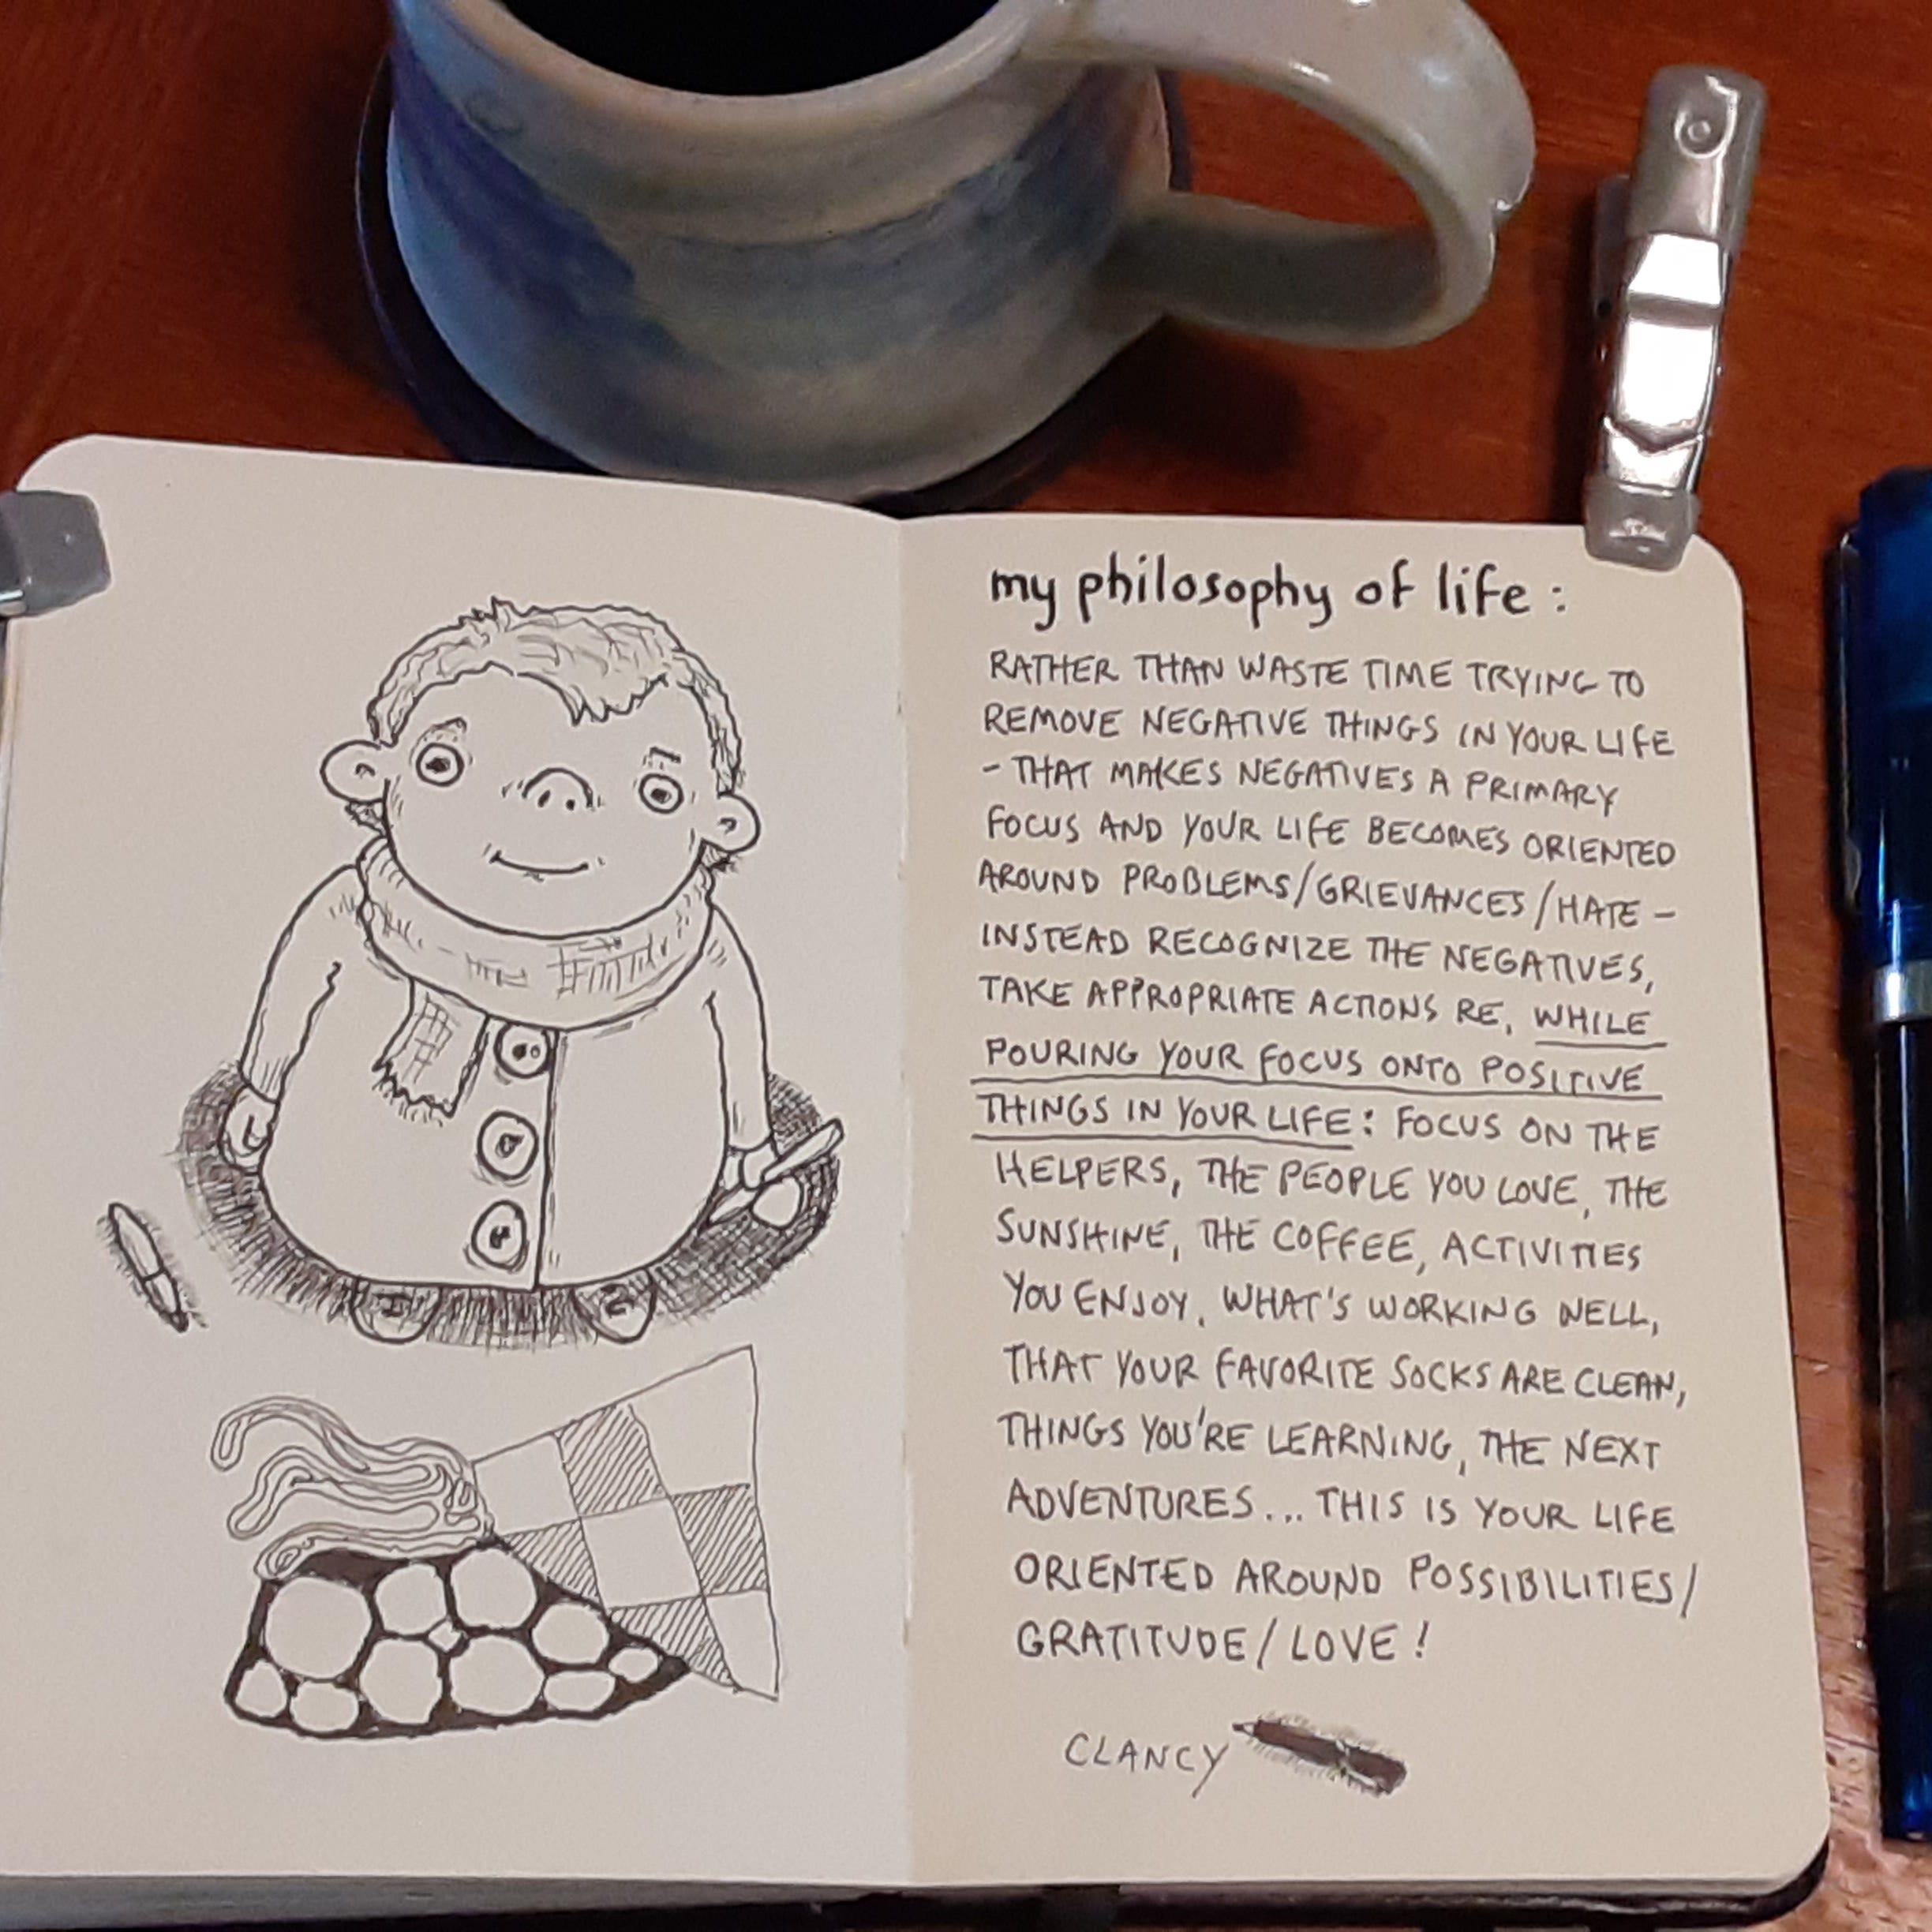 my philosophy of life:
RATHER THAN WASTE TIME TRYING TO
REMOVE NEGATIVE THINGS IN YOUR LIFE
- THAT MAKES NEGATIVES A PRIMARY
FOCUS AND YOUR LIFE BECOMES ORIENTED
AROUND PROBLEMS/GRIEVANCES/HATE -
INSTEAD RECOGNIZE THE NEGATIVES,
TAKE APPROPRIATE ACTIONS RE, WHILE
POURING YOUR FOCUS ONTO POSITIVE
THINGS IN YOUR LIFE: FOCUS ON THE
HELPERS, THE PEOPLE YOU LOVE, THE
SUNSHINE, THE COFFEE, ACTIVITIES
YOU ENJOY. WHAT'S WORKING WELL,
THAT YOUR FAVORITE SOCKS ARE CLEAN,
THINGS YOU'RE LEARNING, THE NEXT
ADVENTURES... THIS IS YOUR LIFE
ORIENTED AROUND POSSIBILITIES/
GRATITUDE/LOVE!
CLANCY